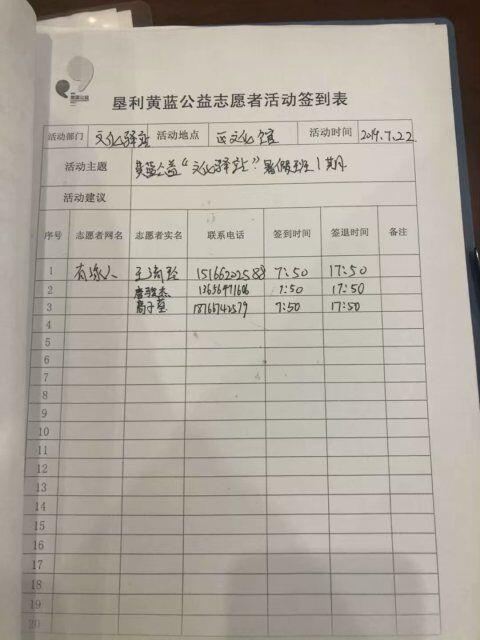 黄蓝公益
垦利黄蓝公益志愿者活动签到表
活动部门 文化驿站 活动地点 区文化馆 活动时间 2019.7.22
活动主题 黄蓝公益“文化驿站”暑假班1期
活动建议
序号 志愿者网名 志愿者实名 联系电话 签到时间 签退时间 备注
1 有缘人 15166202583 7:50 17:50
2 唐骏杰 13656471606 7:50 17:50
3 高子茎 18761742579 7:50 17:50
4
5
6
7
8
9
10
11
12
13
14
15
16
17
18
19
20